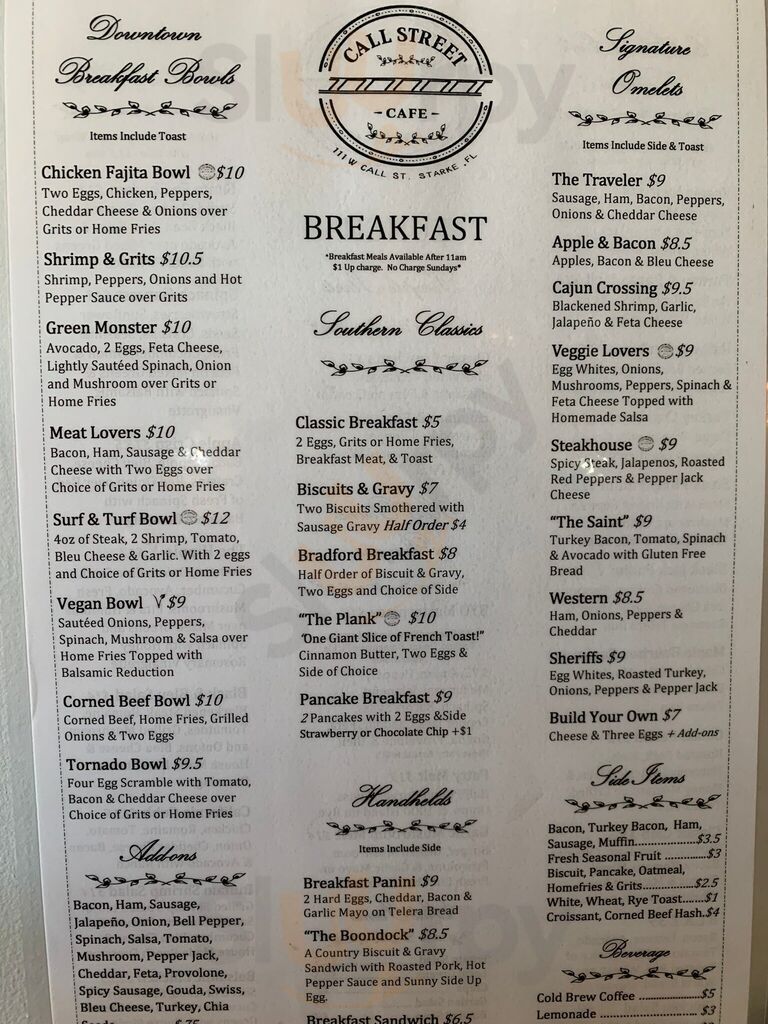 Downtown
Breakfast Bowls
Items Include Toast
Chicken Fajita Bowl $10
Two Eggs, Chicken, Peppers,
Cheddar Cheese & Onions over
Grits or Home Fries
Shrimp & Grits $10.5
Shrimp, Peppers, Onions and Hot
Pepper Sauce over Grits
Green Monster $10
Avocado, 2 Eggs, Feta Cheese,
Lightly Sautéed Spinach, Onion
and Mushroom over Grits or
Home Fries
Meat Lovers $10
Bacon, Ham, Sausage & Cheddar
Cheese with Two Eggs over
Choice of Grits or Home Fries
Surf & Turf Bowl $12
4oz of Steak, 2 Shrimp, Tomato,
Bleu Cheese & Garlic. With 2 eggs
and Choice of Grits or Home Fries
Vegan Bowl V $9
Sautéed Onions, Peppers,
Spinach, Mushroom & Salsa over
Home Fries Topped with
Balsamic Reduction
Corned Beef Bowl $10
Corned Beef, Home Fries, Grilled
Onions & Two Eggs
Tornado Bowl $9.5
Four Egg Scramble with Tomato,
Bacon & Cheddar Cheese over
Choice of Grits or Home Fries
Add-ons
Bacon, Ham, Sausage,
Jalapeño, Onion, Bell Pepper,
Spinach, Salsa, Tomato,
Mushroom, Pepper Jack,
Cheddar, Feta, Provolone,
Spicy Sausage, Gouda, Swiss,
Bleu Cheese, Turkey, Chia
CALL STREET
- CAFE -
111 W CALL ST. STARKE, FL
BREAKFAST
*Breakfast Meals Available After 11am
$1 Up charge. No Charge Sundays*
Southern Classics
Classic Breakfast $5
2 Eggs, Grits or Home Fries,
Breakfast Meat, & Toast
Biscuits & Gravy $7
Two Biscuits Smothered with
Sausage Gravy Half Order $4
Bradford Breakfast $8
Half Order of Biscuit & Gravy,
Two Eggs and Choice of Side
"The Plank" $10
"One Giant Slice of French Toast!"
Cinnamon Butter, Two Eggs &
Side of Choice
Pancake Breakfast $9
2 Pancakes with 2 Eggs &Side
Strawberry or Chocolate Chip +$1
Handhelds
Items Include Side
Breakfast Panini $9
2 Hard Eggs, Cheddar, Bacon &
Garlic Mayo on Telera Bread
"The Boondock" $8.5
A Country Biscuit & Gravy
Sandwich with Roasted Pork, Hot
Pepper Sauce and Sunny Side Up
Egg.
Breakfast Sandwich $6.5
Signature
Omelets
Items Include Side & Toast
The Traveler $9
Sausage, Ham, Bacon, Peppers,
Onions & Cheddar Cheese
Apple & Bacon $8.5
Apples, Bacon & Bleu Cheese
Cajun Crossing $9.5
Blackened Shrimp, Garlic,
Jalapeño & Feta Cheese
Veggie Lovers $9
Egg Whites, Onions,
Mushrooms, Peppers, Spinach &
Feta Cheese Topped with
Homemade Salsa
Steakhouse $9
Spicy Steak, Jalapenos, Roasted
Red Peppers & Pepper Jack
Cheese
"The Saint" $9
Turkey Bacon, Tomato, Spinach
& Avocado with Gluten Free
Bread
Western $8.5
Ham, Onions, Peppers &
Cheddar
Sheriffs $9
Egg Whites, Roasted Turkey,
Onions, Peppers & Pepper Jack
Build Your Own $7
Cheese & Three Eggs + Add-ons
Side Items
Bacon, Turkey Bacon, Ham,
Sausage, Muffin....................$3.5
Fresh Seasonal Fruit .............$3
Biscuit, Pancake, Oatmeal,
Homefries & Grits.................$2.5
White, Wheat, Rye Toast.......$1
Croissant, Corned Beef Hash.$4
Beverage
Cold Brew Coffee ....................$5
Lemonade ................................$3